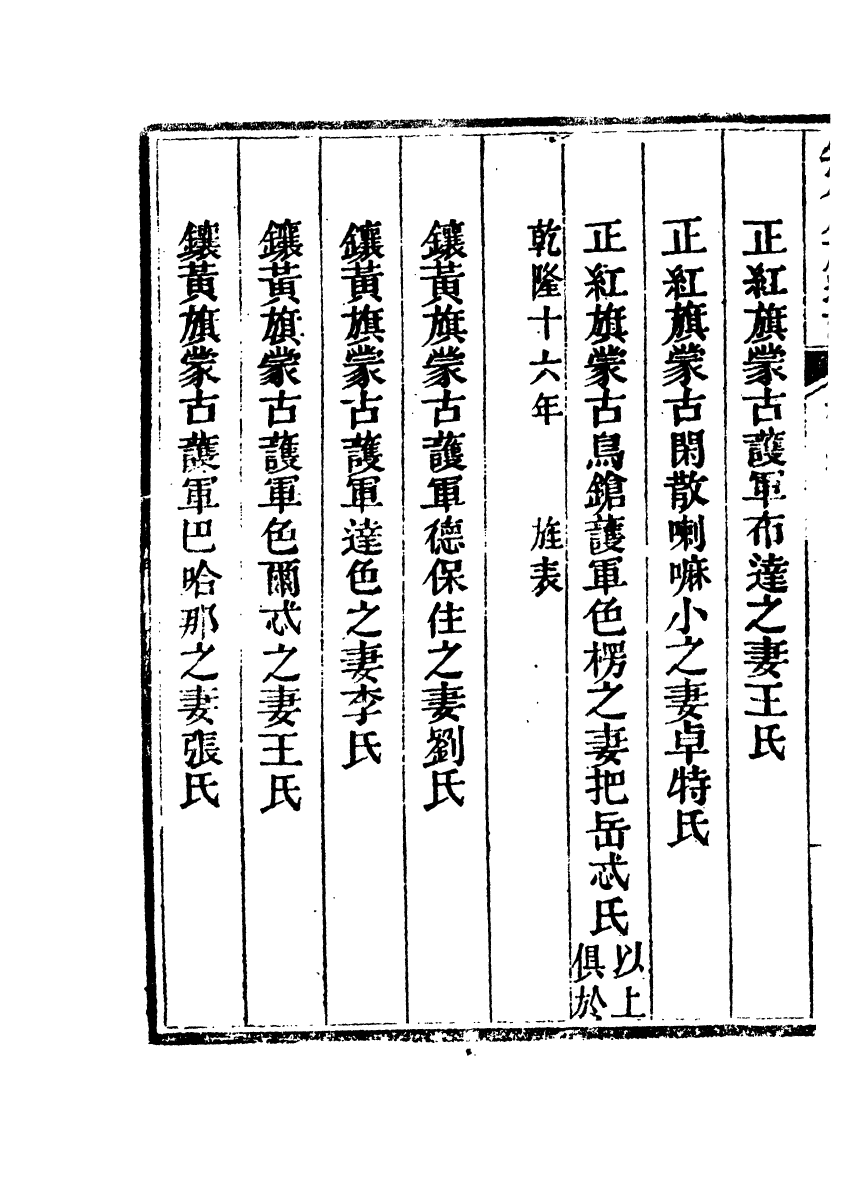 正紅旗蒙古護軍布達之妻王氏
正紅旗蒙古閑散喇嘛小之妻卓特氏
正紅旗蒙古鳥鎗護軍色楞之妻把岳忒氏以上俱於
乾隆十六年 旌表
鑲黃旗蒙古護軍德保住之妻劉氏
鑲黃旗蒙古護軍達色之妻李氏
鑲黃旗蒙古護軍色爾忒之妻王氏
鑲黃旗蒙古護軍巴哈那之妻張氏